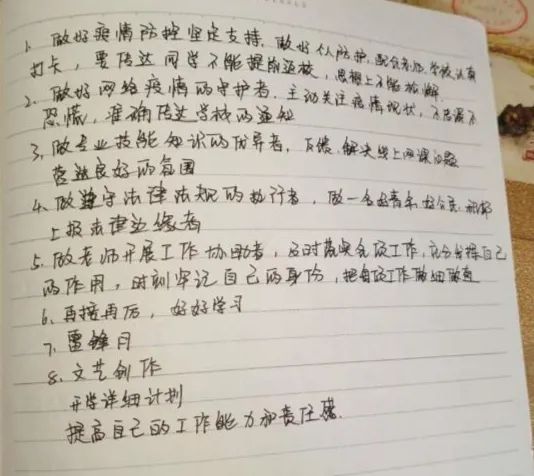 1. 做好疫情防控坚定支持，做好个人防护，配合老师、学校认真
打卡，要传达同学不能提前返校，思想上不能松懈
2. 做好网络疫情的守护者，主动关注疫情现状，不
恐慌，准确传达学校的通知
3. 做专业技能知识的优异者，反馈、解决线上网课问题
营造良好的氛围
4. 做遵守法律法规的执行者，做一名好青年、好公民
上报法律边缘者
5. 做老师开展工作协助者，及时落实各项工作，充分发挥自己
的作用，时刻牢记自己的身份，把每项工作做细做实
6. 再接再厉，好好学习
7. 雷锋月
8. 文艺创作
开学详细计划
提高自己的工作能力和责任感.